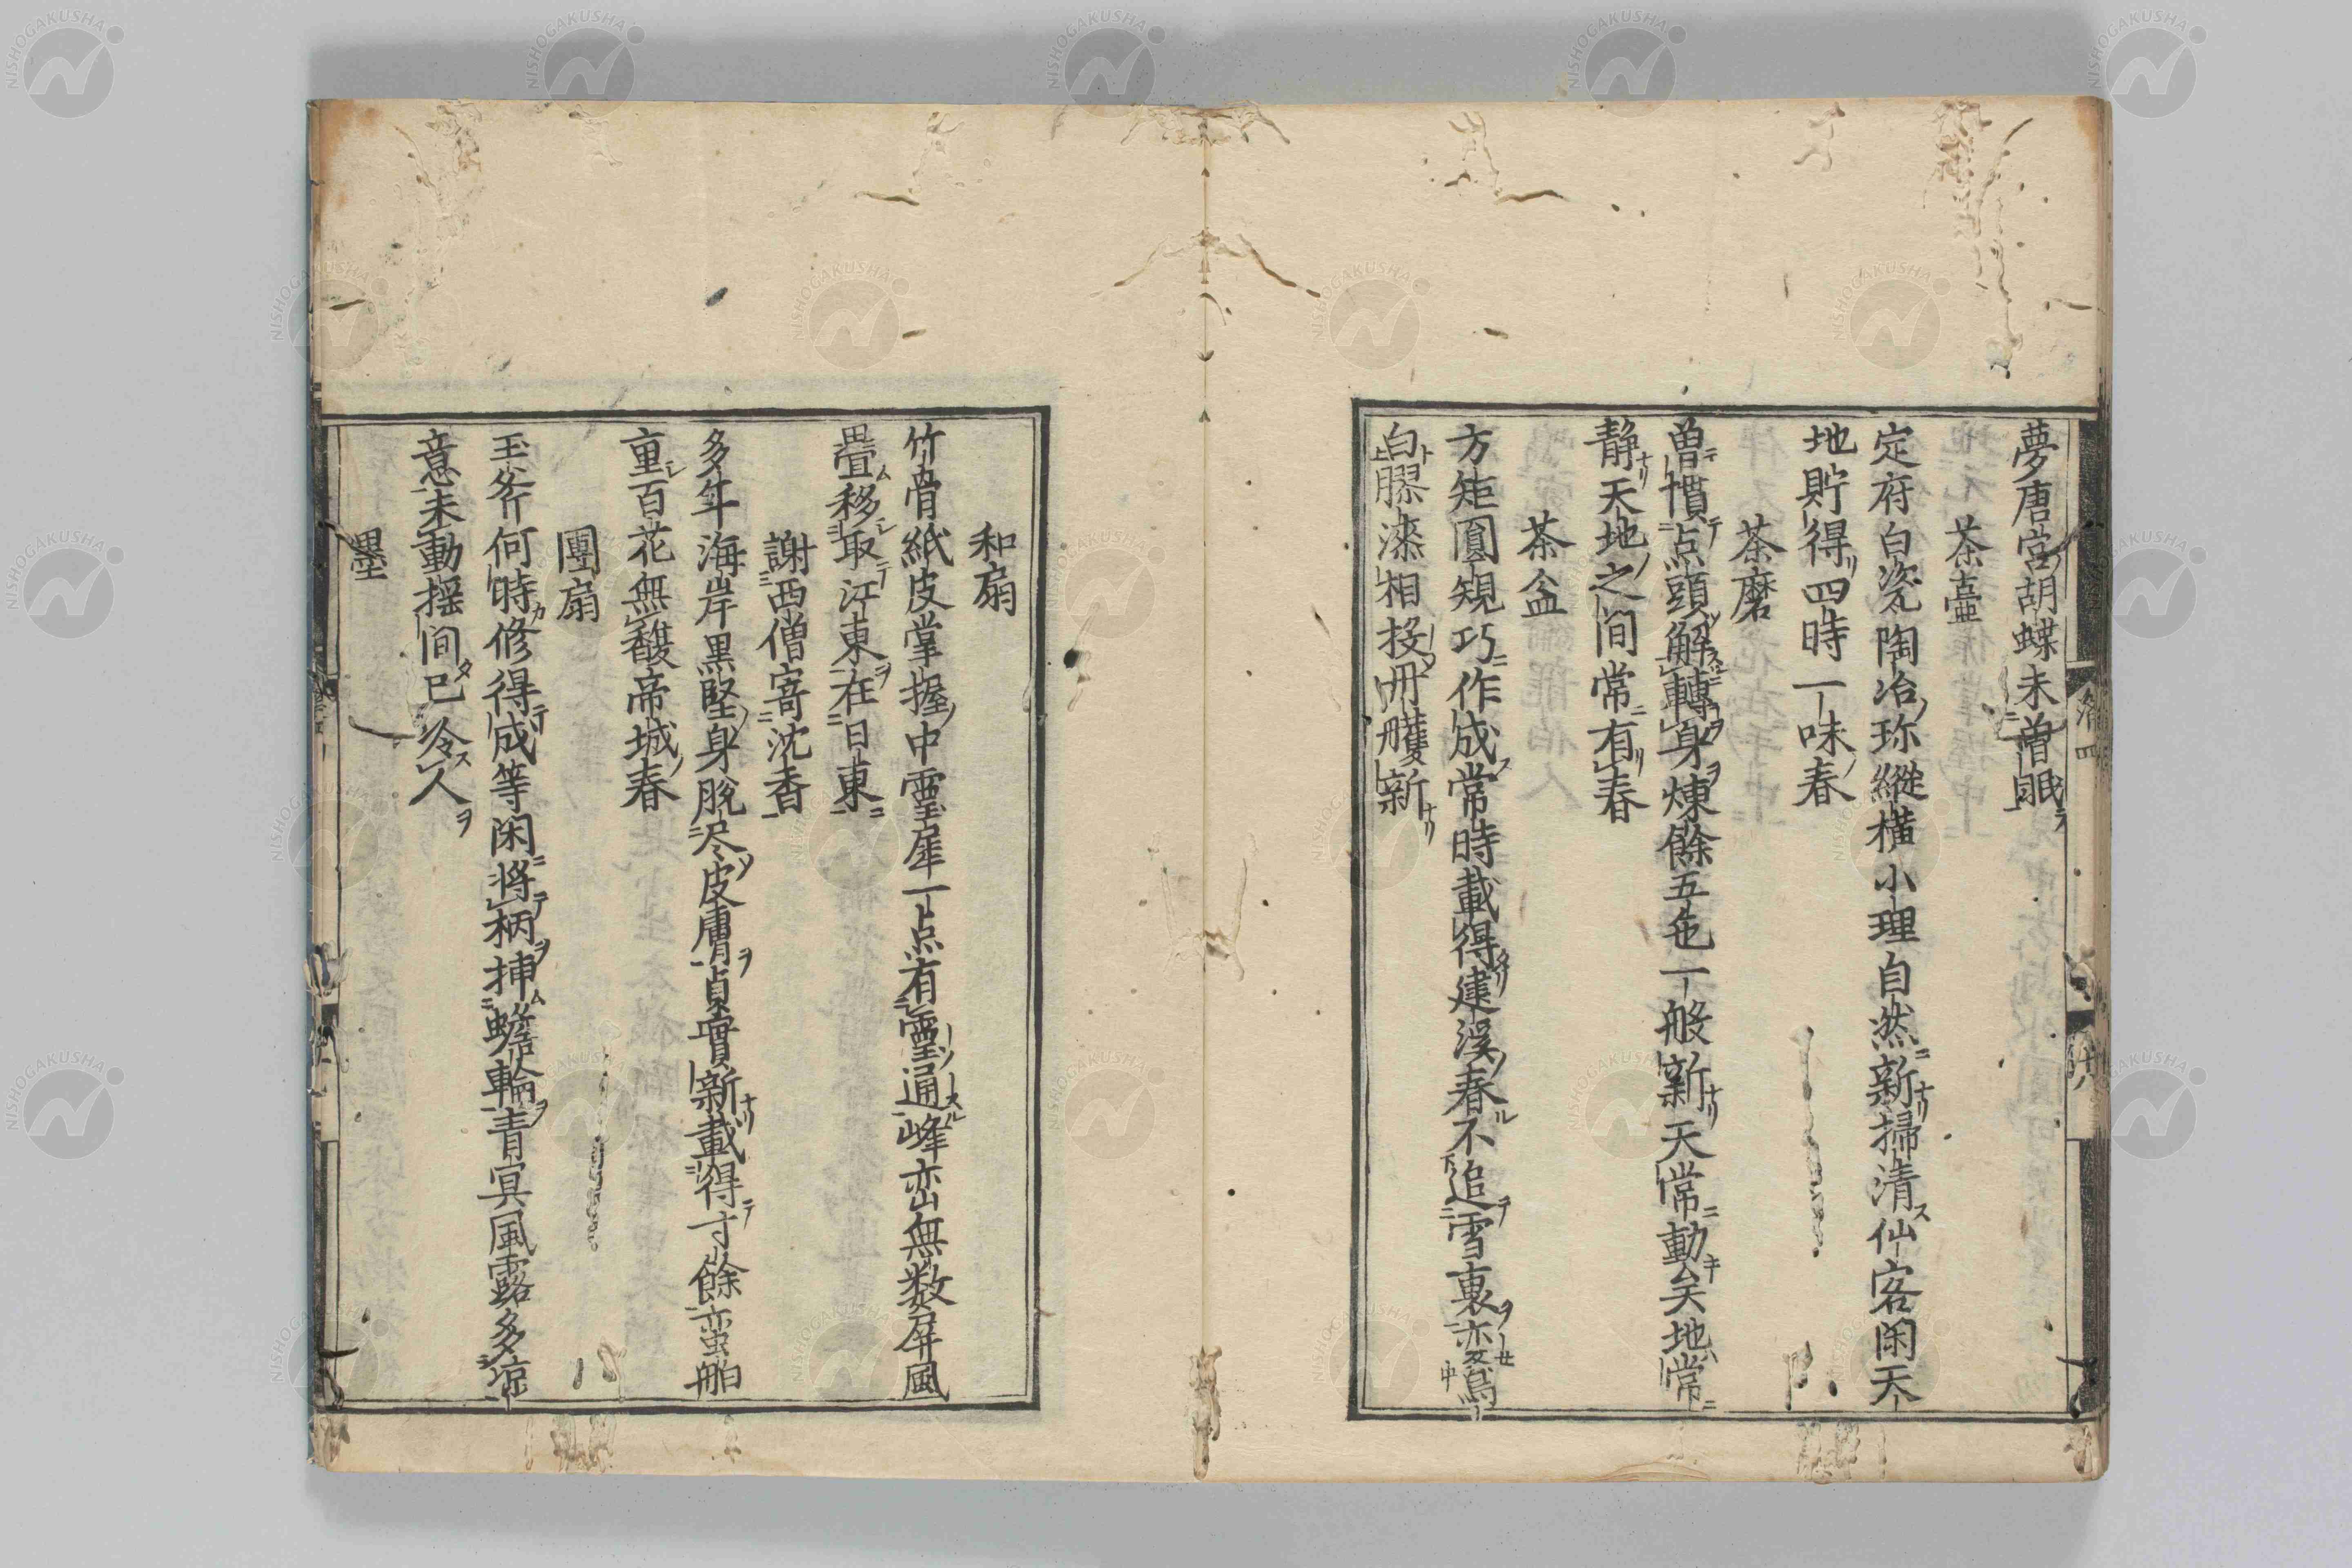 夢唐宮胡蝶未曽眠
茶壷
定府白瓷陶冶珎縱橫小理自然新掃清仙客閑天
地貯得四時一味春
茶磨
曽慣点頭解轉身煉餘五色一般新天常動矣地常
静天地之間常有春
茶盆
方矩圓䂓巧作成常時載得建溪春不追雪裏変鵞
白膠漆相投丹雘新
和扇
竹骨紙皮掌握中霊犀一点有霊通峰峦無数屏風
畳移取江東在日東
謝西僧寄沈香
多年海岸黒堅身脫尽皮膚貞實新載得寸餘蛮舶
重百花無馥帝城春
團扇
玉斧何時修得成等閑將柄挿蟾輪青冥風露多凉
意未動揺間已冷人
墨